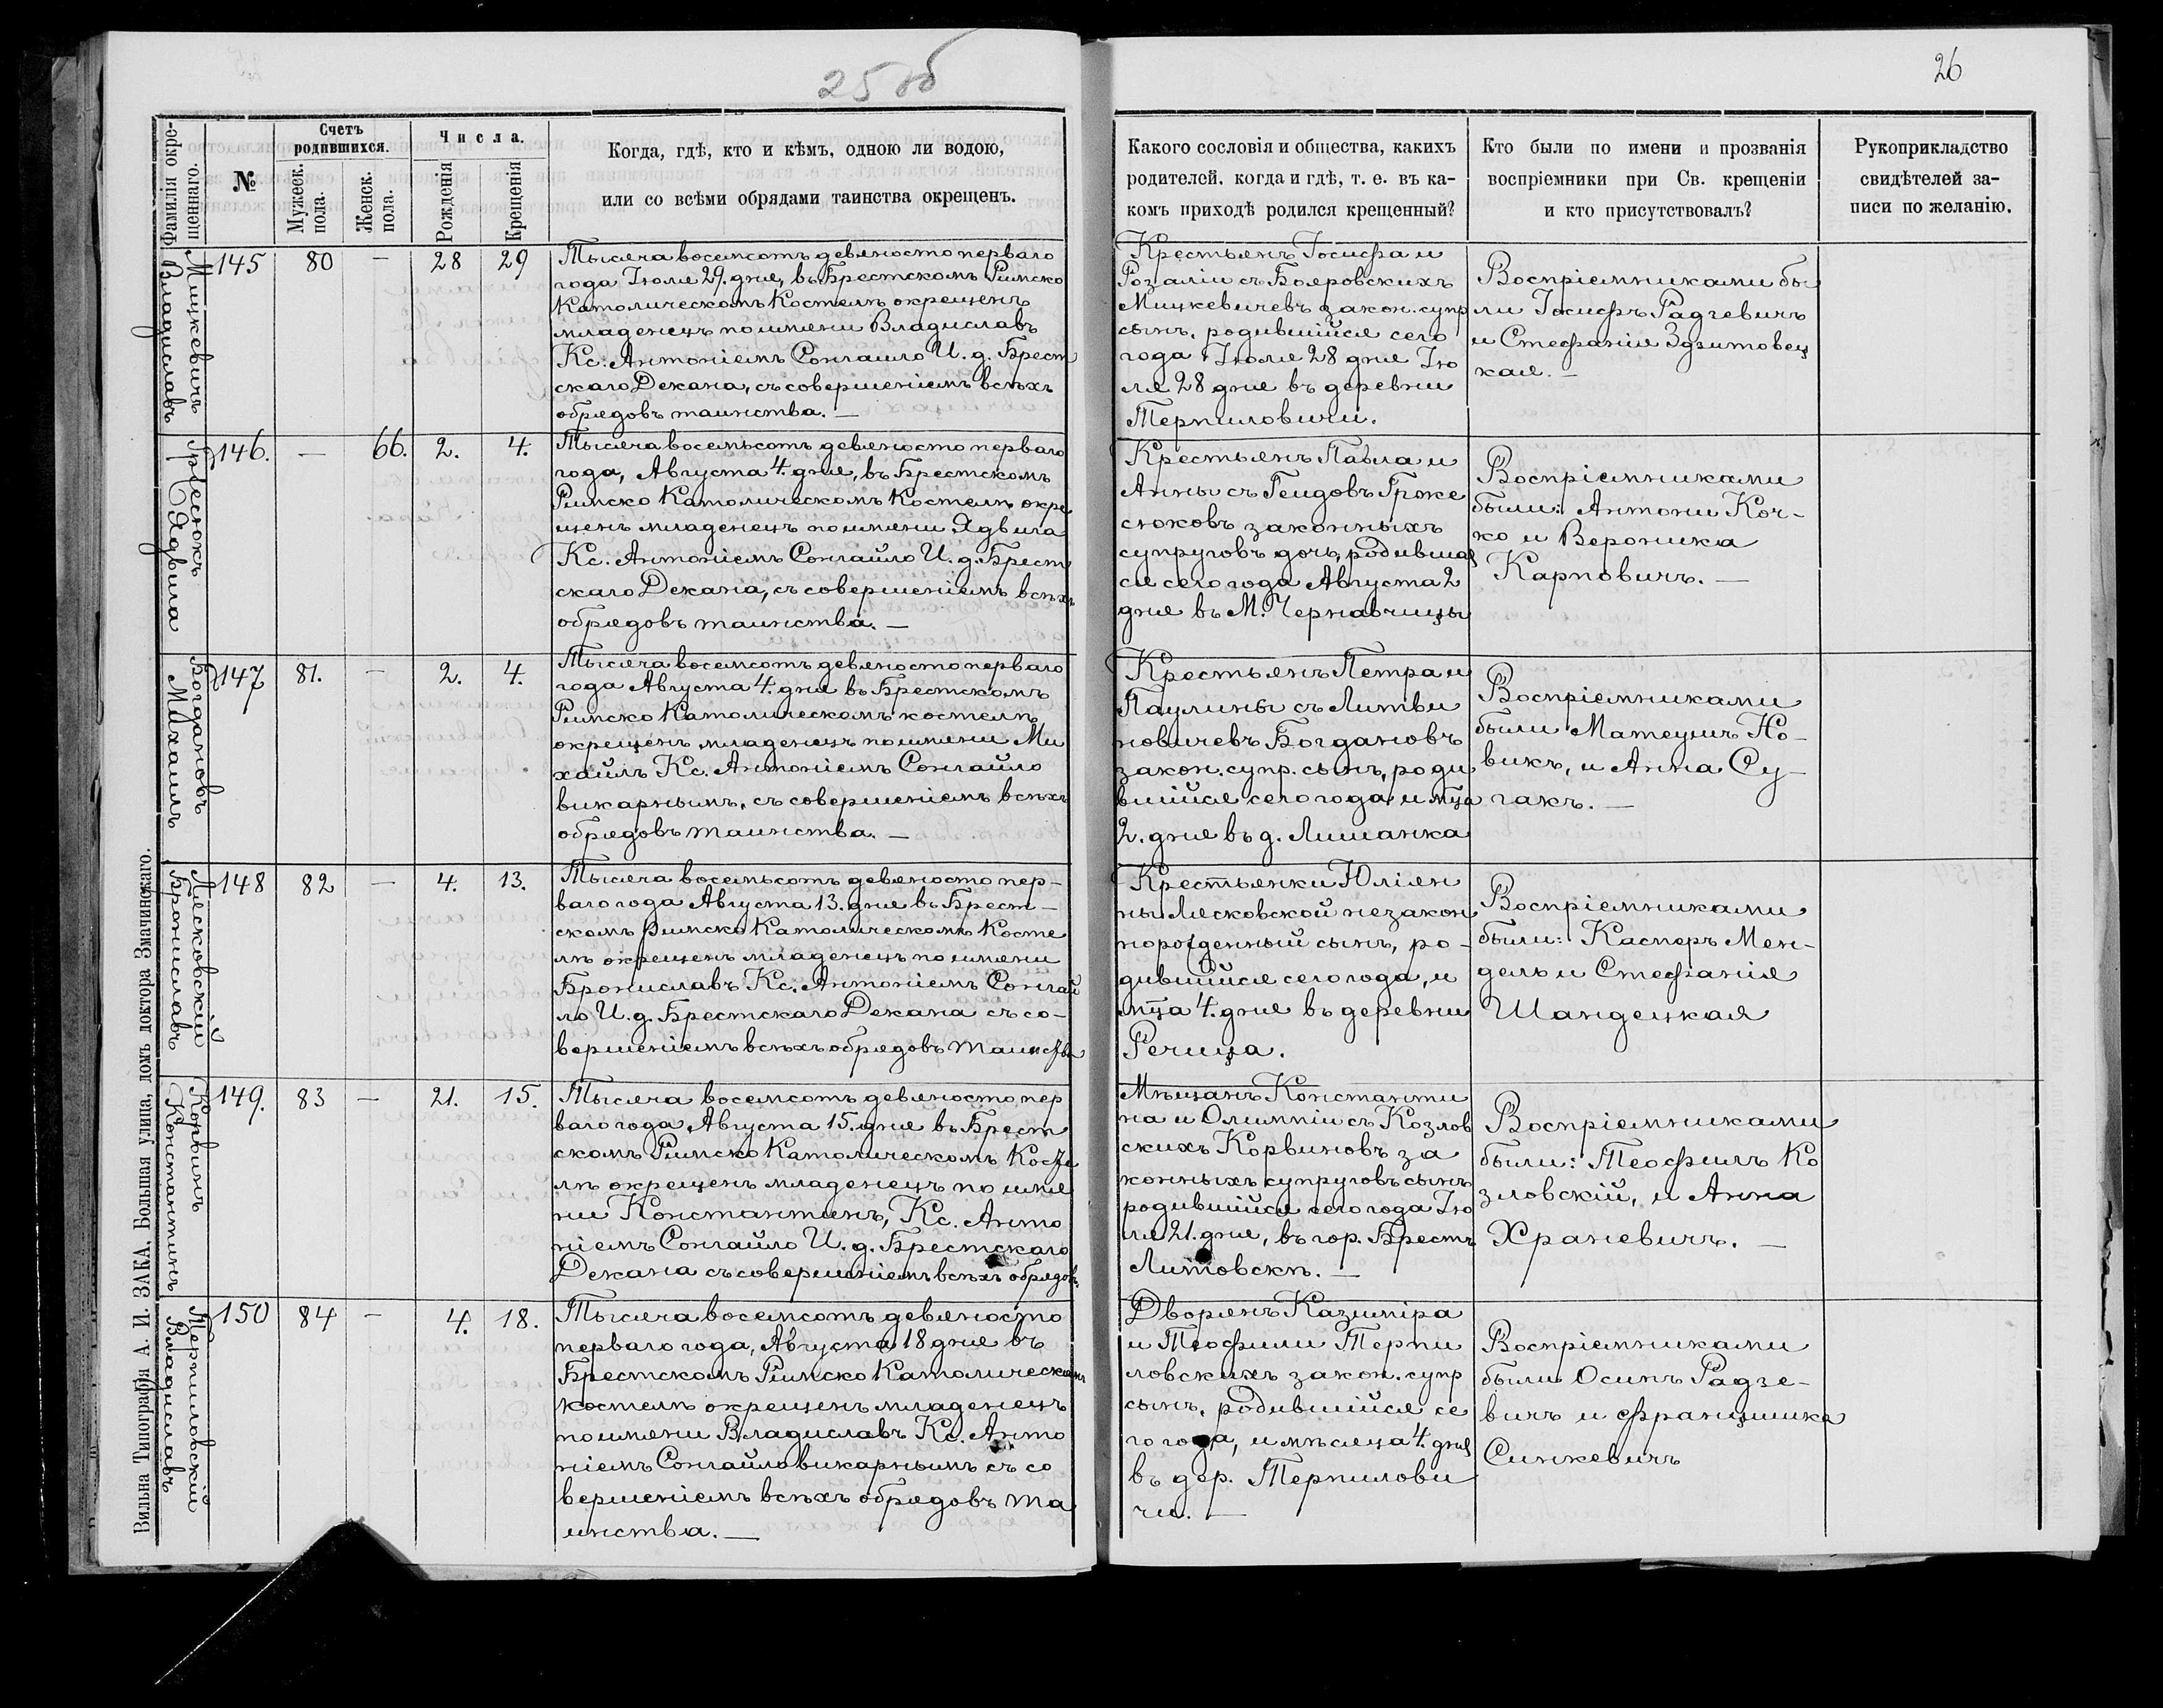 25 об
26
Фамилія окре-
щеннаго.
№
Счетъ
родившихся.
Мужеск.
пола.
Женск.
пола.
Числа.
Рожденія
Крещенія
Когда, гдѣ, кто и кѣмъ, одною ли водою,
или со всѣми обрядами таинства окрещенъ.
Какого сословія и общества, какихъ
родителей. когда и гдѣ, т. е. въ ка-
комъ приходѣ родился крещенный?
Кто были по имени и прозванія
воспріемники при Св. крещеніи
и кто присутствовалъ?
Рукоприкладство
свидѣтелей за-
писи по желанію.
Мицкевичъ
Владиславъ
145
80
—
28
29
Тысяча восемсотъ девяносто перваго
года Іюля 29. дня, въ Брестскомъ Римско
Католическомъ Костелѣ окрещенъ
младенецъ по имени Владиславъ
Кс. Антоніемъ Сонгайло И. д. Брест
скаго Декана, съ совершеніемъ всѣхъ
обрядовъ таинства. —
Крестьянъ Іосифа и
Розаліи съ Бояровскихъ
Мицкевичевъ закон. супр
сынъ, родившійся сего
года Іюля 28 дня Ію
ля 28 дня въ деревни
Терпиловичи.
Воспріемниками бы
ли Іосифъ Радзевичъ
и Стефанія Здзитовец
кая. —
Ядвига
146.
—
66.
2.
4.
Тысяча восемьсотъ девяносто перваго
года, Августа 4. дня, въ Брестскомъ
Римско Католическомъ Костелѣ окре
щенъ младенецъ по имени Ядвига
Кс. Антоніемъ Сонгайло И. д. Брест
скаго Декана, съ совершеніемъ всѣхъ
обрядовъ таинства. —
Крестьянъ Павла и
Анны съ
законныхъ
супруговъ дочь, родивша
ся сего года Августа 2
дня въ М. Чернавчицы
Воспріемниками
были: Антони Коч-
ко и Вероника
Карповичъ. —
Богдановъ
Михаилъ
147
81.
—
2.
4.
Тысяча восемсотъ девяносто перваго
года Августа 4. дня въ Брестскомъ
Римско Католическомъ костелѣ
окрещенъ младенецъ по имени Ми
хаилъ Кс. Антоніемъ Сонгайло
викарнымъ, съ совершеніемъ всѣхъ
обрядовъ таинства. —
Крестьянъ Петра и
Паулины съ Литви
новичевъ Богдановъ
закон. супр. сынъ, роди
вшійся сего года и мца
2. дня въ д. Лишанка
Воспріемниками
были Матеушъ Но-
викъ, и Анна Су-
гакъ. —
Лясковскій
Брониславъ
148
82
—
4.
13.
Тысяча восемьсотъ девяносто пер-
ваго года Августа 13. дня въ Брест-
скомъ Римско Католическомъ Косте
лѣ окрещенъ младенецъ по имени
Брониславъ Кс. Антоніемъ Сонгай
ло И. д. Брестскаго Декана съ со-
вершеніемъ всѣхъ обрядовъ таинства
Крестьянки Юліян
ны Лясковской незакон
норожденный сынъ, ро-
дившійся сего года, и
мца 4. дня въ деревни
Речица.
Воспріемниками
были: Касперъ Мен-
дель и Стефанія
Шандецкая
Корвинъ
Константинъ
149.
83
—
21.
15.
Тысяча восемсотъ девяносто пер
ваго года Августа 15. дня въ Брест
скомъ Римско Католическомъ Косте
лѣ окрещенъ младенецъ по име
ни Константинъ, Кс. Анто
ніемъ Сонгайло И. д. Брестскаго
Декана съ совершеніемъ всѣхъ обрядовъ.
Мѣщанъ Константи
на и Олимпіи съ Козлов
скихъ Корвиновъ за
конныхъ супруговъ сынъ
родившійся сего года Ію
ля 21. дня, въ гор. Брестъ
Литовскѣ. —
Воспріемниками
были: Теофилъ Ко
зловскій, и Анна
Храневичъ. —
Терпиловскій
Владиславъ
150
84
—
4.
18.
Тысяча восемсотъ девяносто
перваго года, Августа 18 дня въ
Брестскомъ Римско Католическомъ
костелѣ окрещенъ младенецъ
по имени Владиславъ Кс. Анто
ніемъ Сонгайло викарнымъ съ со
вершеніемъ всѣхъ обрядовъ та
инства. —
Дворянъ Казиміра
и Теофили Терпи
ловскихъ закон. супр
сынъ, родившійся се
го года, и мѣсяца 4. дня
въ дер. Терпилови
чи. —
Воспріемниками
были Осипъ Радзе-
вичъ и Францишка
Синкевичъ
Вильна Типографія А. И. ЗАКА, Большая улица, домъ доктора Змачинскаго.